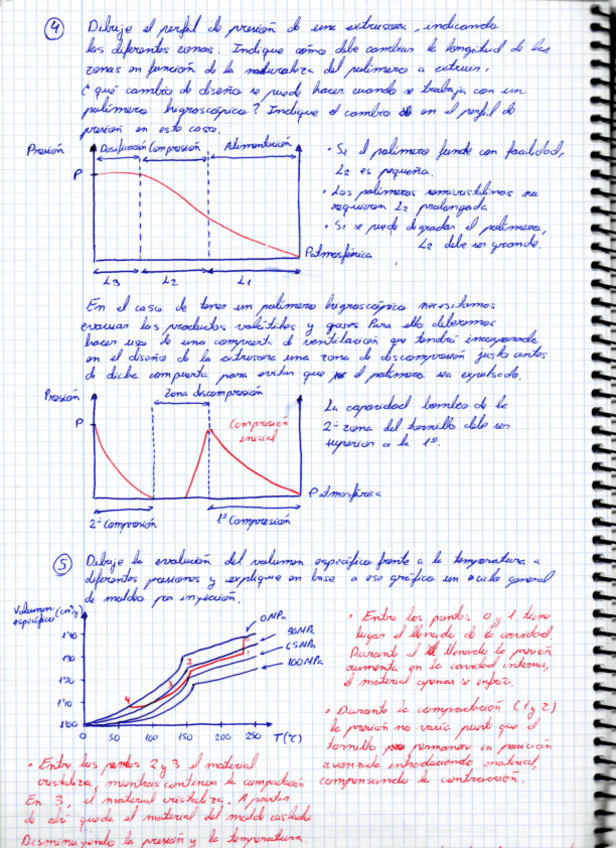 4 Dibuje el perfil de presión de una extrusora, indicando
las diferentes zonas. Indique cómo debe cambiar la longitud de las
zonas en función de la naturaleza del polímero a extruir.
¿qué cambio de diseño se puede hacer cuando se trabaja con un
polímero higroscópico? Indique el cambio en el perfil de
presión en este caso.
Presión
Dosificación Compresión Alimentación
P
Patmosférica
L3 L2 L1
• Si el polímero funde con facilidad,
L2 es pequeña.
• Los polímeros semicristalinos no
requieren L2 prolongada
• Si se puede degradar el polímero,
L2 debe ser grande.
En el caso de tener un polímero higroscópico necesitamos
evacuar los productos volátiles y gases. Para ello debemos
hacer uso de una compuerta de ventilación que tendrá incorporada
en el diseño de la extrusora una zona de descompresión justo antes
de dicha compuerta para evitar que el polímero sea expulsado.
Presión
Zona descompresión
P
Compresión
inicial
Patmosférica
2ª Compresión 1ª Compresión
La capacidad bombeo de la
2ª zona del tornillo debe ser
superior a la 1ª.
5 Dibuje la evolución del volumen específico frente a la temperatura a
diferentes presiones y explique en base a ese gráfico un ciclo general
de moldeo por inyección.
Volumen
específico
1'40
1'30
1'20
1'10
1'00
0 50 100 150 200 250 T(ºC)
0 MPa
30 MPa
65 MPa
100 MPa
0
1
2
3
4
• Entre los puntos 0 y 1 tiene
lugar el llenado de la cavidad.
Durante el llenado la presión
aumenta en la cavidad interna,
el material apenas se enfría.
• Durante la compactación (1 y 2)
la presión no varía puesto que el
tornillo permanece en posición
avanzada introduciendo material,
compensando la contracción.
• Entre los puntos 2 y 3 el material
cristaliza, mientras continua la compactación
En 3, el material cristaliza. A partir
de ahí queda el material del molde aislado
Disminuyendo la presión y la temperatura.